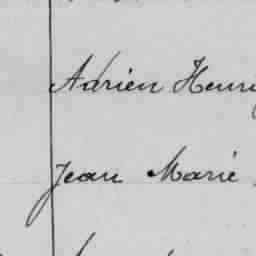 Adrien Henry
Jean Marie